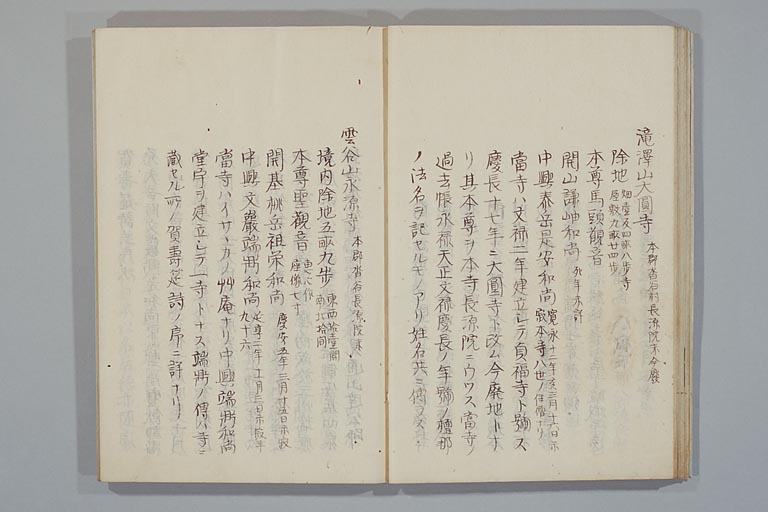 滝澤山大圓寺 本郡沓谷村長源院末今廢
除地 畑壹反四畝八歩寺
屋敷九畝廿四歩
本尊馬頭觀音
開山謙岫和尚 死年未詳
中興泰岳是安和尚 寛永十二年亥三月十一日示
寂本寺八世ノ住僧ナリ
當寺ハ文禄二年建立シテ貞福寺ト号ス
慶長十七年ニ大圓寺ト改ム今廢地トナ
リ其本尊ヲ本寺長源院ニウツス當寺ノ
過去帳永禄天正文禄慶長ノ年号ノ檀那
ノ法名ヲ記セルモノアリ姓名共ニ傳フス
雲谷山永源寺 本郡沓谷長源院末
境内除地五畝九歩 東西拾壹間
南北拾間
本尊聖觀音 恵心作
座像七寸
開基桃岳祖栄和尚 慶安五年三月廿五日示寂
中興文巖端門和尚 延享二年十一月三日示寂年
九十六
當寺ハイサヽカノ艸庵ナリ中興端門和尚
堂宇ヲ建立シテ一寺トナス端門ノ傳ハ寺ニ
蔵セル所ノ賀壽延詩ノ序ニ詳ナリ